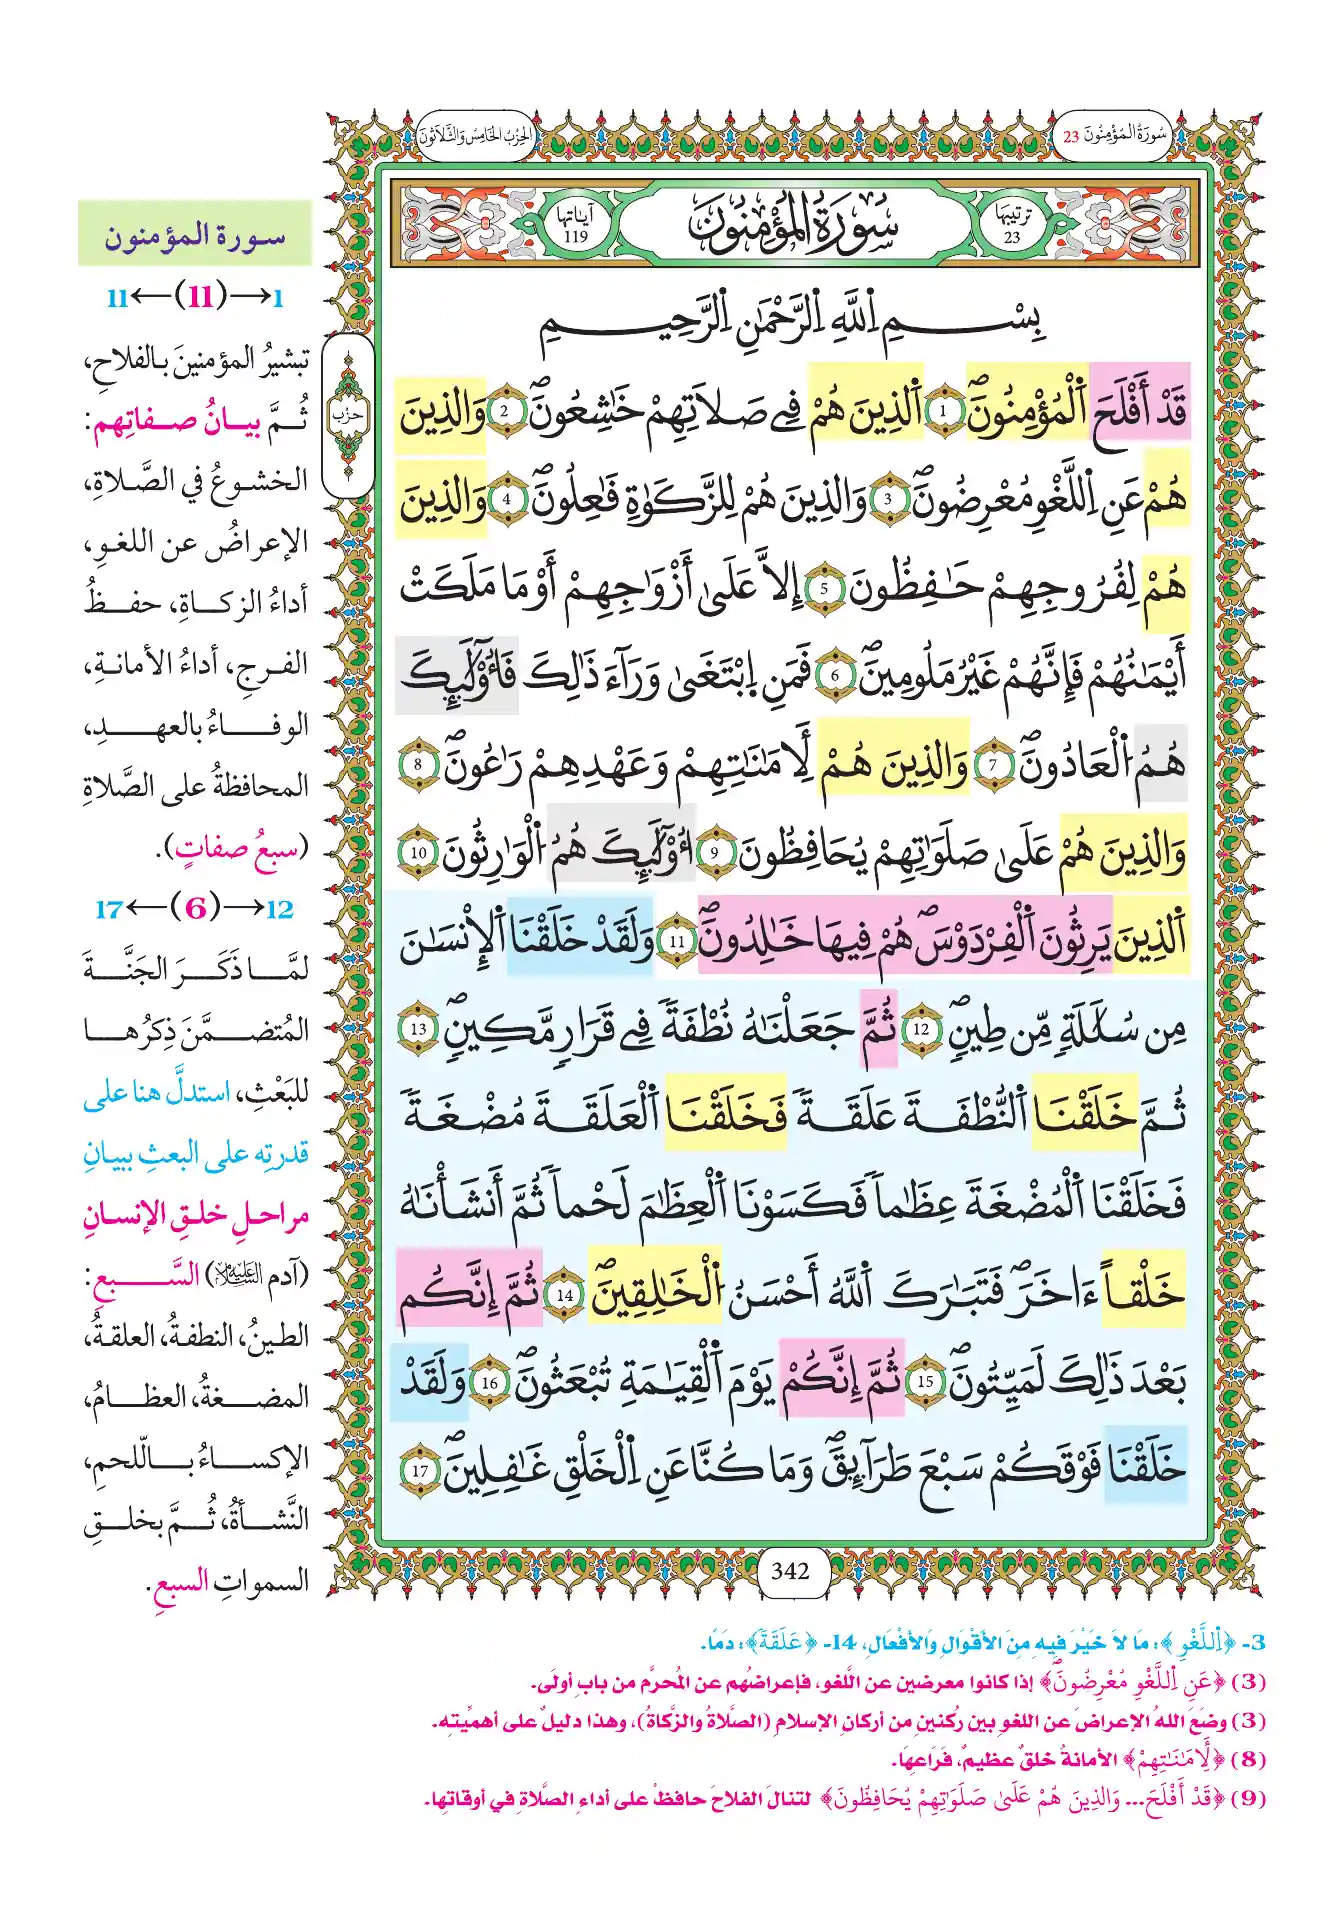 سُورَةُ المُؤْمِنُونَ 23
الحِزْبُ الخَامِسُ وَالثَّلَاثُونَ
ترتيبها 23
سُورَةُ الْمُؤْمِنُونَ
آياتها 119
بِسْمِ اِللَّهِ اِلرَّحْمَٰنِ اِلرَّحِيمِ
قَدْ أَفْلَحَ اَلْمُؤْمِنُونَ 1 اَلذِينَ هُمْ فِي صَلَاتِهِمْ خَٰشِعُونَ 2 وَالذِينَ
هُمْ عَنِ اِللَّغْوِ مُعْرِضُونَ 3 وَالذِينَ هُمْ لِلزَّكَوٰةِ فَٰعِلُونَ 4 وَالذِينَ
هُمْ لِفُرُوجِهِمْ حَٰفِظُونَ 5 إِلَّا عَلَىٰ أَزْوَٰجِهِمْ أَوْ مَا مَلَكَتْ
أَيْمَٰنُهُمْ فَإِنَّهُمْ غَيْرُ مَلُومِينَ 6 فَمَنِ اِبْتَغَىٰ وَرَآءَ ذَٰلِكَ فَأُوْلَٰٓئِكَ
هُمُ اُلْعَادُونَ 7 وَالذِينَ هُمْ لِأَمَٰنَٰتِهِمْ وَعَهْدِهِمْ رَٰعُونَ 8
وَالذِينَ هُمْ عَلَىٰ صَلَوَٰتِهِمْ يُحَافِظُونَ 9 أُوْلَٰٓئِكَ هُمُ اُلْوَٰرِثُونَ 10
اَلذِينَ يَرِثُونَ اَلْفِرْدَوْسَ هُمْ فِيهَا خَٰلِدُونَ 11 وَلَقَدْ خَلَقْنَا اَلْإِنسَٰنَ
مِن سُلَٰلَةٍ مِّن طِينٍ 12 ثُمَّ جَعَلْنَٰهُ نُطْفَةً فِي قَرَارٍ مَّكِينٍ 13
ثُمَّ خَلَقْنَا اَلنُّطْفَةَ عَلَقَةً فَخَلَقْنَا اَلْعَلَقَةَ مُضْغَةً
فَخَلَقْنَا اَلْمُضْغَةَ عِظَٰمًا فَكَسَوْنَا اَلْعِظَٰمَ لَحْمًا ثُمَّ أَنشَأْنَٰهُ
خَلْقًا ءَاخَرَ فَتَبَٰرَكَ اَللَّهُ أَحْسَنُ اُلْخَٰلِقِينَ 14 ثُمَّ إِنَّكُم
بَعْدَ ذَٰلِكَ لَمَيِّتُونَ 15 ثُمَّ إِنَّكُمْ يَوْمَ اَلْقِيَٰمَةِ تُبْعَثُونَ 16 وَلَقَدْ
خَلَقْنَا فَوْقَكُمْ سَبْعَ طَرَآئِقَ وَمَا كُنَّا عَنِ اِلْخَلْقِ غَٰفِلِينَ 17
حزب
342
سورة المؤمنون
1→(11)←11
تبشيرُ المؤمنينَ بالفلاحِ،
ثُمَّ بيانُ صفاتِهم:
الخشوعُ في الصَّلاةِ،
الإعراضُ عن اللغوِ،
أداءُ الزكاةِ، حفظُ
الفرجِ، أداءُ الأمانةِ،
الوفاءُ بالعهدِ،
المحافظةُ على الصَّلاةِ
(سبعُ صفاتٍ).
12→(6)←17
لمَّا ذَكَرَ الجَنَّةَ
المُتضمَّنَ ذِكرُها
للبَعْثِ، استدلَّ هنا على
قدرتِه على البعثِ ببيانِ
مراحلِ خلقِ الإنسانِ
(آدم عليه السلام) السَّبعِ:
الطينُ، النطفةُ، العلقةُ،
المضغةُ، العظامُ،
الإكساءُ باللّحمِ،
النَّشأةُ، ثُمَّ بخلقِ
السمواتِ السبعِ.
3- ﴿اِللَّغْوِ﴾: مَا لاَ خَيْرَ فِيهِ مِنَ الأَقْوَالِ وَالأَفْعَالِ، 14- ﴿عَلَقَةً﴾: دَمًا.
(3) ﴿عَنِ اِللَّغْوِ مُعْرِضُونَ﴾ إذا كانوا معرضين عن اللَّغو، فإعراضُهم عن المُحرَّم من بابِ أولَى.
(3) وضَعَ اللهُ الإعراضَ عن اللغو بين رُكنينِ من أركانِ الإسلامِ (الصَّلاةُ والزَّكاةُ)، وهذا دليلٌ على أهمِّيتِه.
(8) ﴿لِأَمَٰنَٰتِهِمْ﴾ الأمانةُ خلقٌ عظيمٌ، فَرَاعِهَا.
(9) ﴿قَدْ أَفْلَحَ... وَالذِينَ هُمْ عَلَىٰ صَلَوَٰتِهِمْ يُحَافِظُونَ﴾ لتنالَ الفلاحَ حافظْ على أداءِ الصَّلاةِ في أوقاتِها.